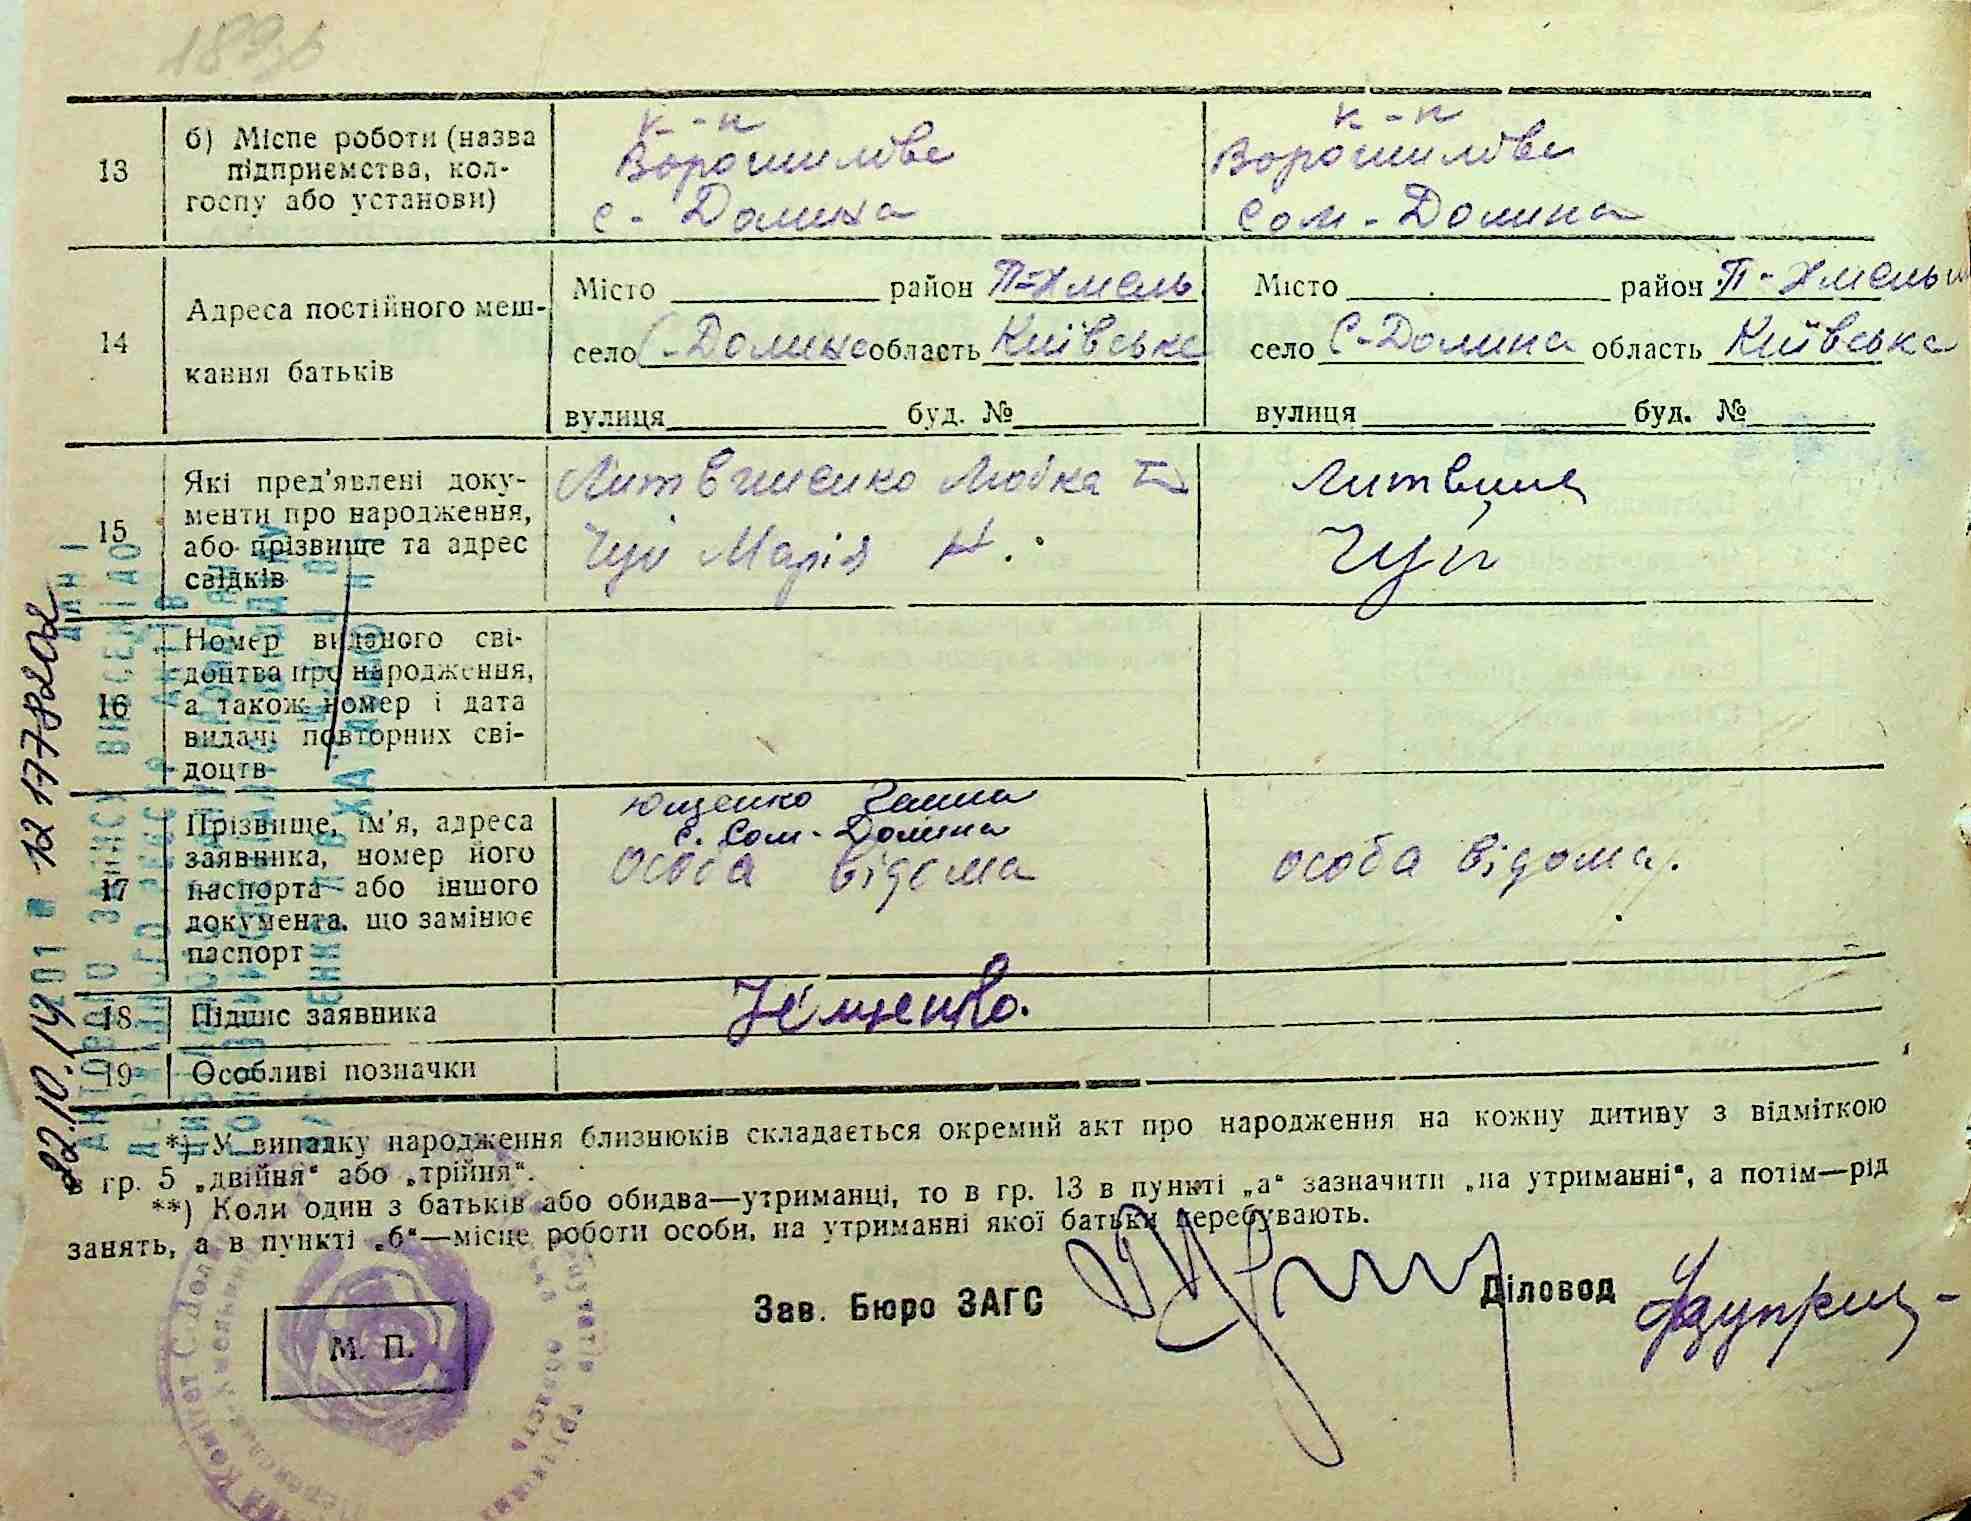 13
б) Місце роботи (назва
підприємства, кол-
госпу або установи)
к-п
Ворошилова
с-Долина
к-п
Ворошилова
Сом-Долина
14
Адреса постійного меш-
кання батьків
Місто район П-Хмель
село С-Долина область Київська
вулиця буд. №
Місто район П-Хмельн
село С-Долина область Київська
вулиця буд. №
15
Які пред'явлені доку-
менти про народження,
або прізвище та адрес
свідків
Литвиненко Любка
Чуй Марія Н.
Литвин
Чуй
16
Номер виданого сві-
доцтва про народження,
а також номер і дата
видачі повторних сві-
доцтв
17
Прізвище, ім'я, адреса
заявника, номер його
паспорта або іншого
документа, що замінює
паспорт
Ющенко Ганна
с. Сом-Долина
особа відома
особа відома.
18
Підпис заявника
Ющенко.
19
Особливі позначки
*) У випадку народження близнюків складається окремий акт про народження на кожну дитину з відміткою
в гр. 5 „двійня“ або „трійня“.
**) Коли один з батьків або обидва—утриманці, то в гр. 13 в пункті „а“ зазначити „на утриманні“, а потім—рід
занять, а в пункті „б“—місце роботи особи, на утриманні якої батьки перебувають.
Зав. Бюро ЗАГС
Діловод
М. П.
22.10.14 201 12 1778202